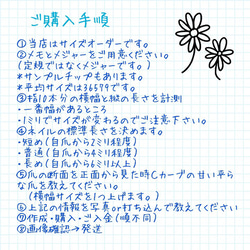 ご購入手順
①当店はサイズオーダーです。
②メモとメジャーをご用意ください。
(定規ではなくメジャーです。)
*サンプルチップもあります。
*平均サイズは36579です。
③指10本分の横幅と縦の長さを計測
一番幅があるところ
・1ミリでサイズが変わるのでご注意下さい。
④ネイルの標準長さを決めます。
・短め(自爪から2ミリ程度)
・普通(自爪から4ミリ程度)
・長め(自爪から6ミリ以上)
⑤爪の断面を正面から見た時Cカーブの甘い平ら
な爪を教えてください。
(横幅サイズを1つ上げます。)
⑥上記の情報を写真or打ち込んで教えてください
⑦作成・購入・ご入金(順不同)
⑧画像確認→発送